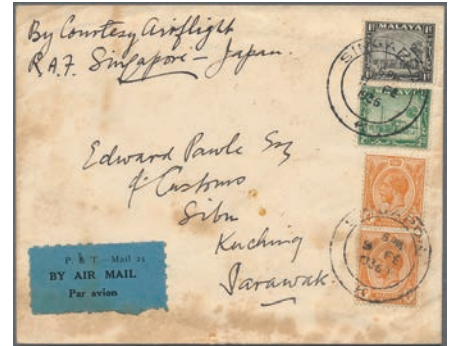 By Courtesy Airflight
R.A.F. Singapore – Japan.
MALAYA
SINGAPO
Edward Pawle Esq
Customs
Sibu
Kuching
Sarawak.
P. & T.—Mail 21
BY AIR MAIL
Par avion